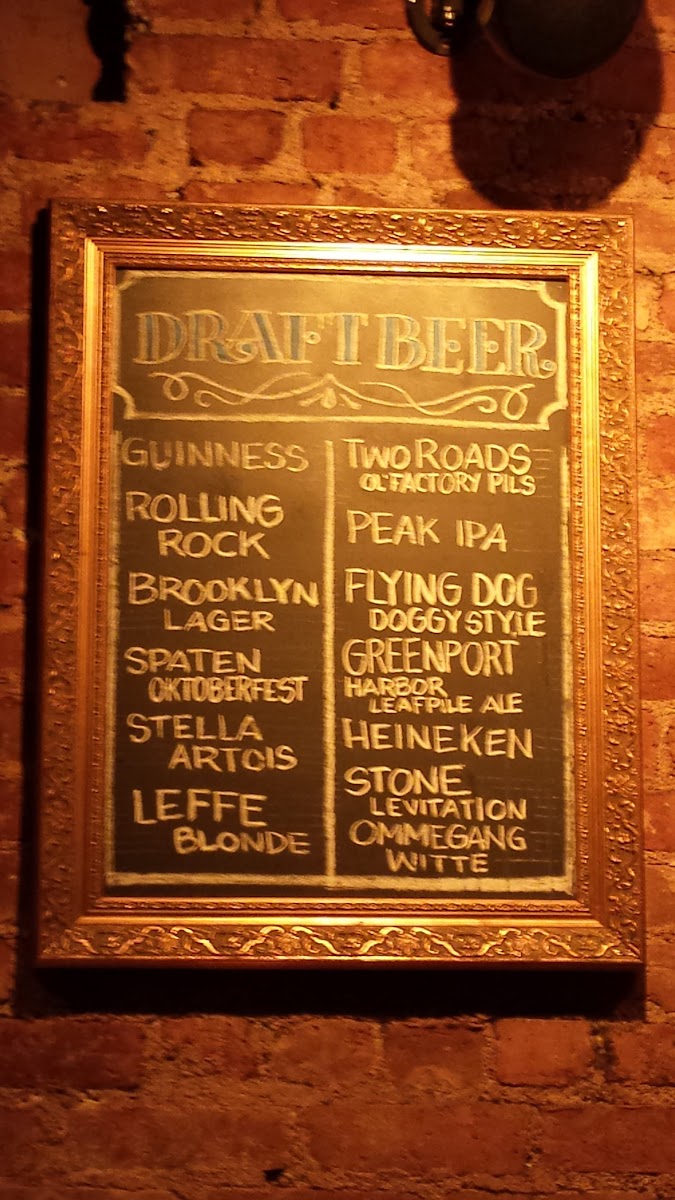 DRAFT BEER
GUINNESS
ROLLING
ROCK
BROOKLYN
LAGER
SPATEN
OKTOBERFEST
STELLA
ARTOIS
LEFFE
BLONDE
TWO ROADS
OL'FACTORY PILS
PEAK IPA
FLYING DOG
DOGGY STYLE
GREENPORT
HARBOR
LEAFPILE ALE
HEINEKEN
STONE
LEVITATION
OMMEGANG
WITTE